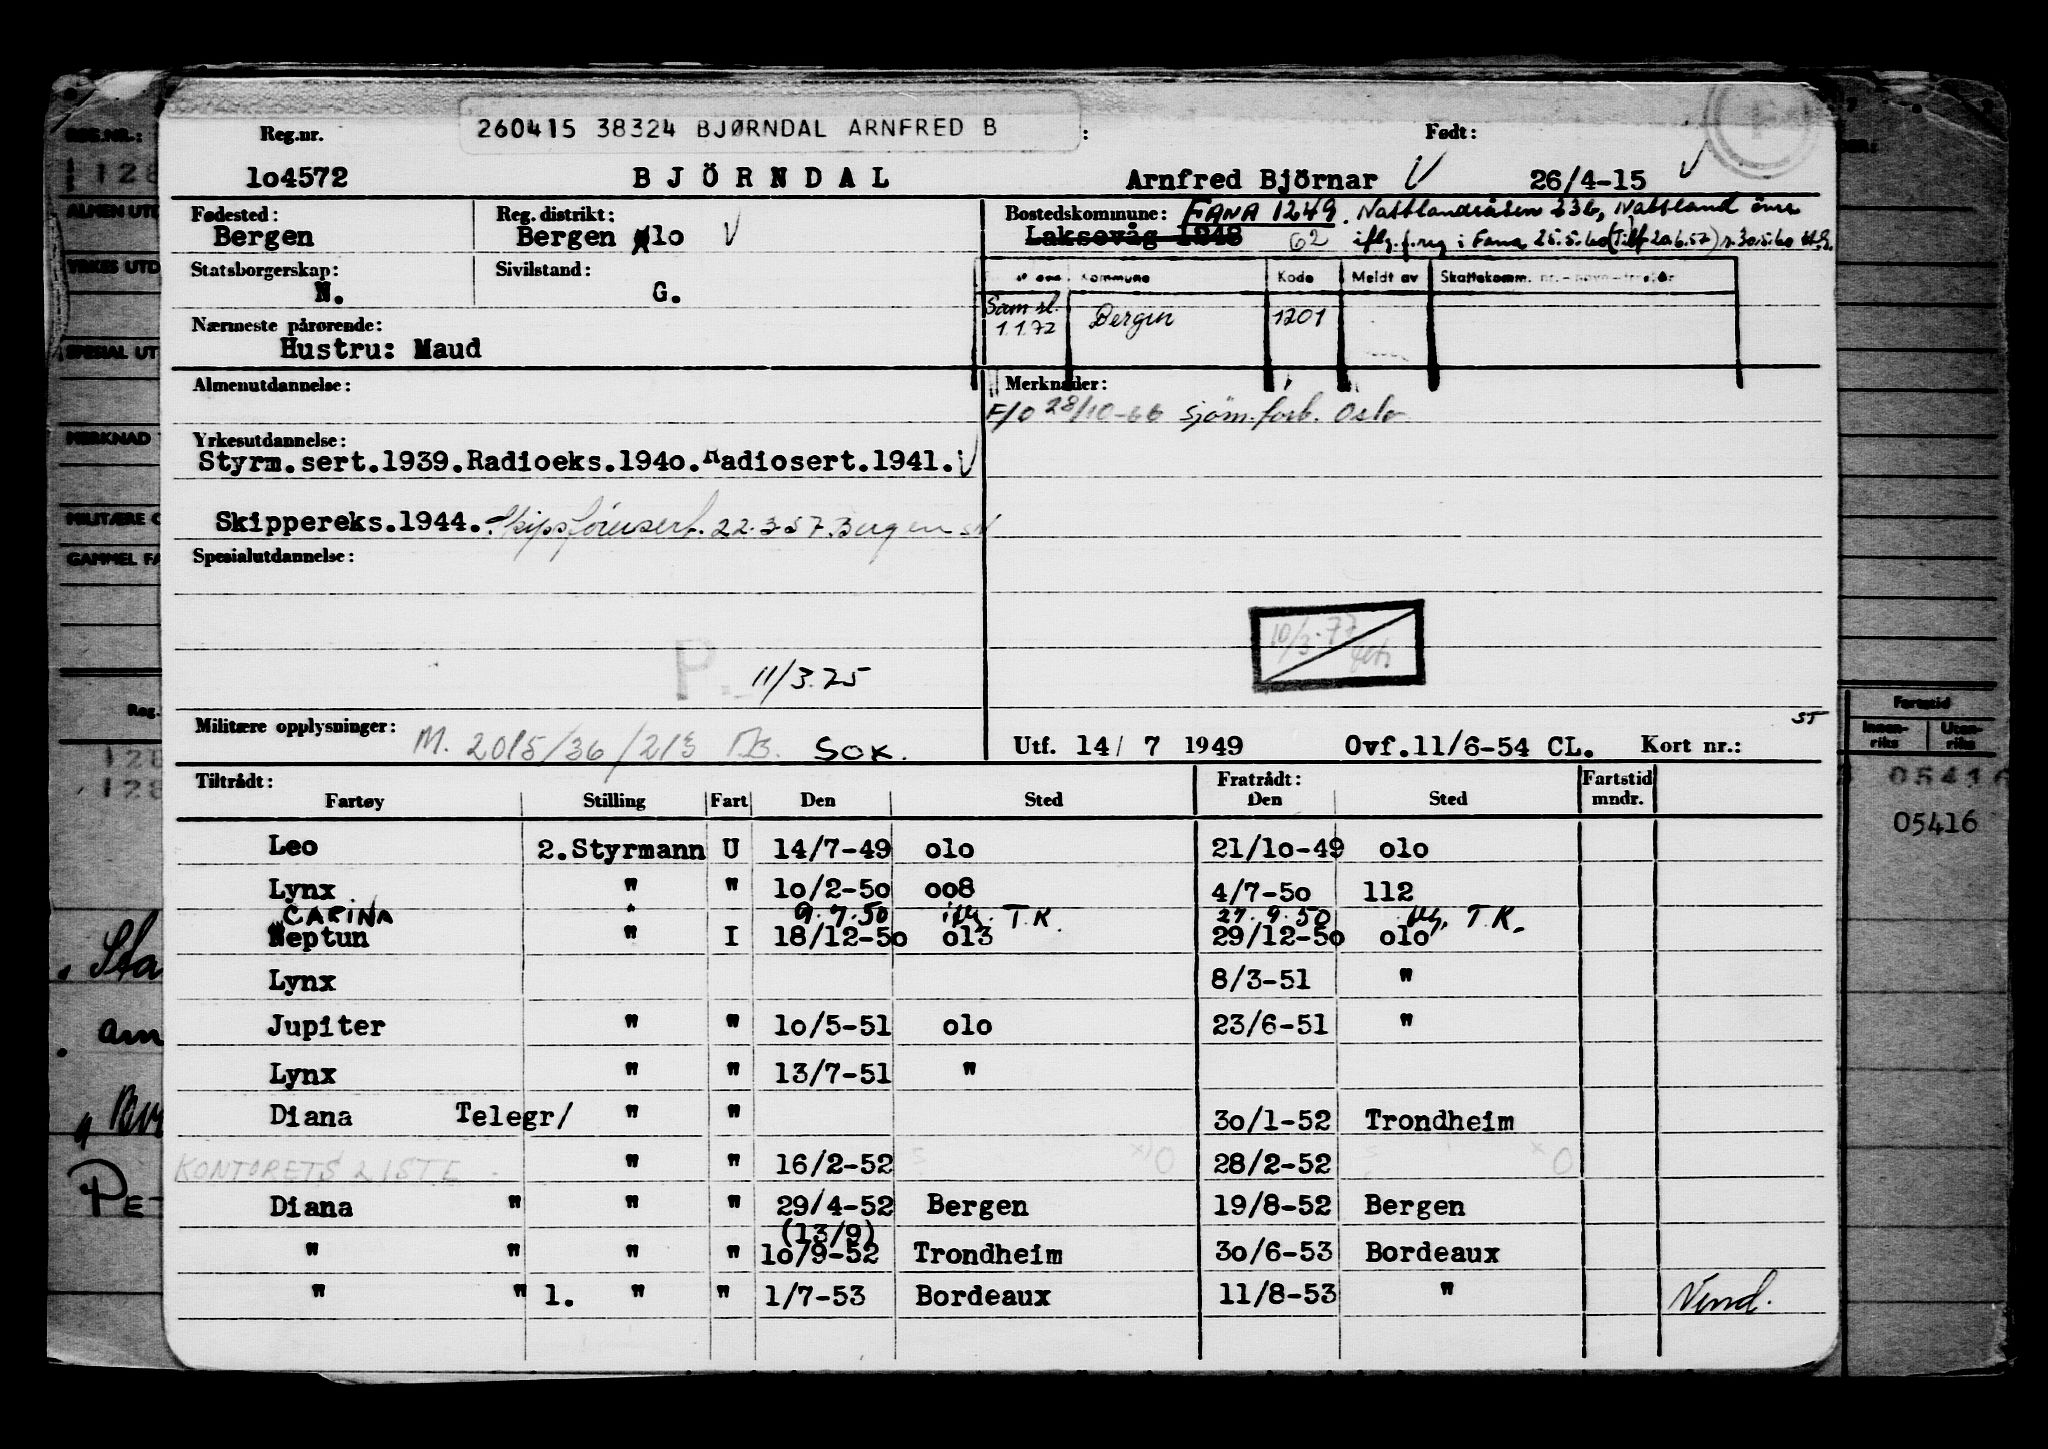 260415 38324 BJØRNDAL ARNFRED B
Reg.nr. : Født:
lo4572 BJÖRNDAL Arnfred Björnar V 26/4-15 V
Fødested: Reg. distrikt: Bostedskommune: FANA 1249. Nattlandsåsen 236, Nattland övre
Bergen Bergen olo V Laksevåg 1248 62 iflg. f.reg i Fana 25.5.60
Statsborgerskap: Sivilstand: Kommune Kode Meldt av Skattekomm. nr.
N. G.
Nærmeste pårørende: Sam.sl. 1.1.72 Bergen 1201
Hustru: Maud
Almenutdannelse: Merknader:
F/O 28/10-66 Sjöm.forb. Oslo
Yrkesutdannelse:
Styrm.sert.1939.Radioeks.194o.Radiosert.1941. V
Skippereks.1944. Skipsförersert. 22.3.57. Bergen
Spesialutdannelse:
10/3-77
P. 11/3.75
ST
Militære opplysninger: M. 2015/36/213 SOK. Utf. 14/ 7 1949 Ovf.11/6-54 CL. Kort nr.:
Tiltrådt: Fratrådt: Fartstid
Fartøy Stilling Fart Den Sted Den Sted mndr.
Leo 2.Styrmann U 14/7-49 olo 21/lo-49 olo
Lynx " " lo/2-5o oo8 4/7-5o 112
CARINA " 9.7.50 iflg. T.K. 27.9.50 iflg. T.K.
Neptun " I 18/12-5o ol3 29/12-5o olo
Lynx 8/3-51 "
Jupiter " " lo/5-51 olo 23/6-51 "
Lynx " " 13/7-51 "
Diana Telegr/ " " 3o/1-52 Trondheim
KONTORETS LISTE " " 16/2-52 28/2-52
Diana " " " 29/4-52 Bergen 19/8-52 Bergen
(13/9)
" " " " lo/9-52 Trondheim 3o/6-53 Bordeaux
" " 1. " " 1/7-53 Bordeaux 11/8-53 " Vend.
REG.NR.:
128
ALMEN UTD
YRKES UTD
SPESIAL UT
MERKNAD
MILITÆRE O
GAMMEL FA
Reg.
128
128
Sta
am
PET
Fartstid
Innen-riks Uten-riks
05416
05416